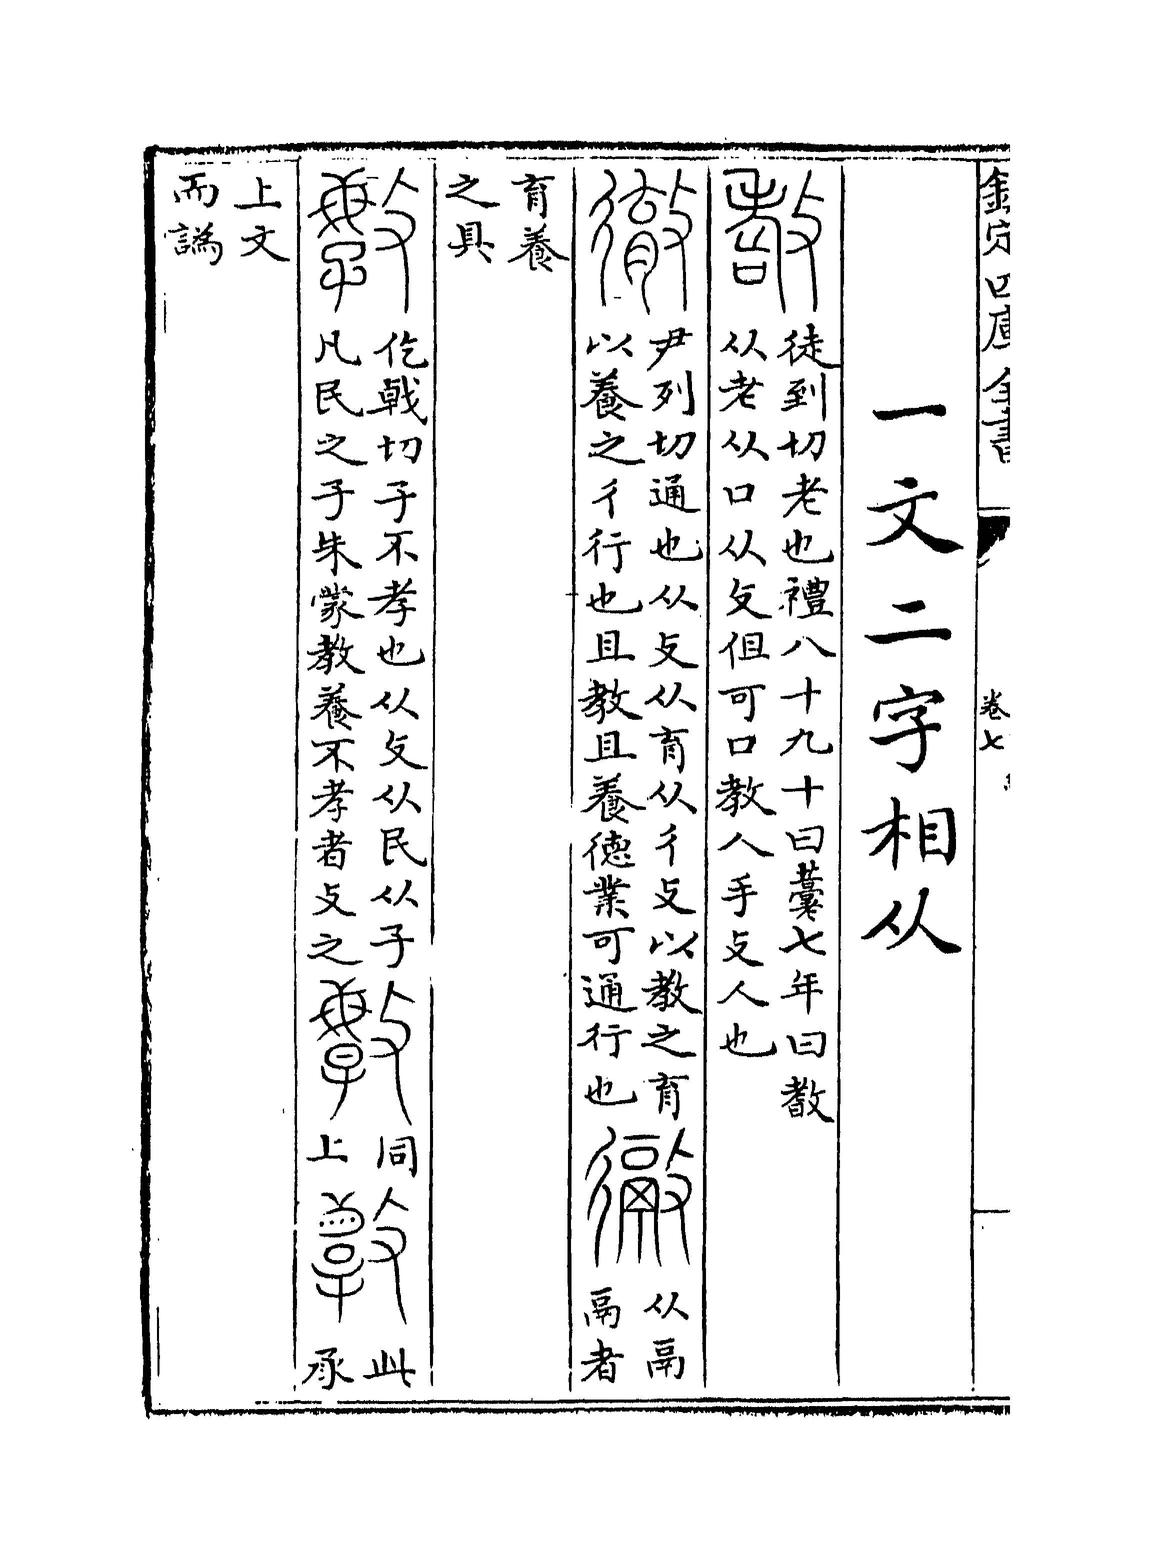 欽定四庫全書
卷七
一文二字相从
徒到切老也禮八十九十曰䒹七年曰
从老从口从攴但可口教人手攴人也
尹列切通也从攴从育从彳攴以教之育
以養之彳行也且教且養德業可通行也
从鬲
鬲者
育養
之具
仡戟切子不孝也从攴从民从子
凡民之子失蒙教養不孝者攴之
同
上
此
承
上文
而譌